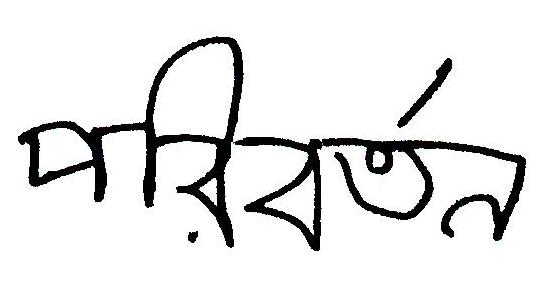 পরিবর্তন